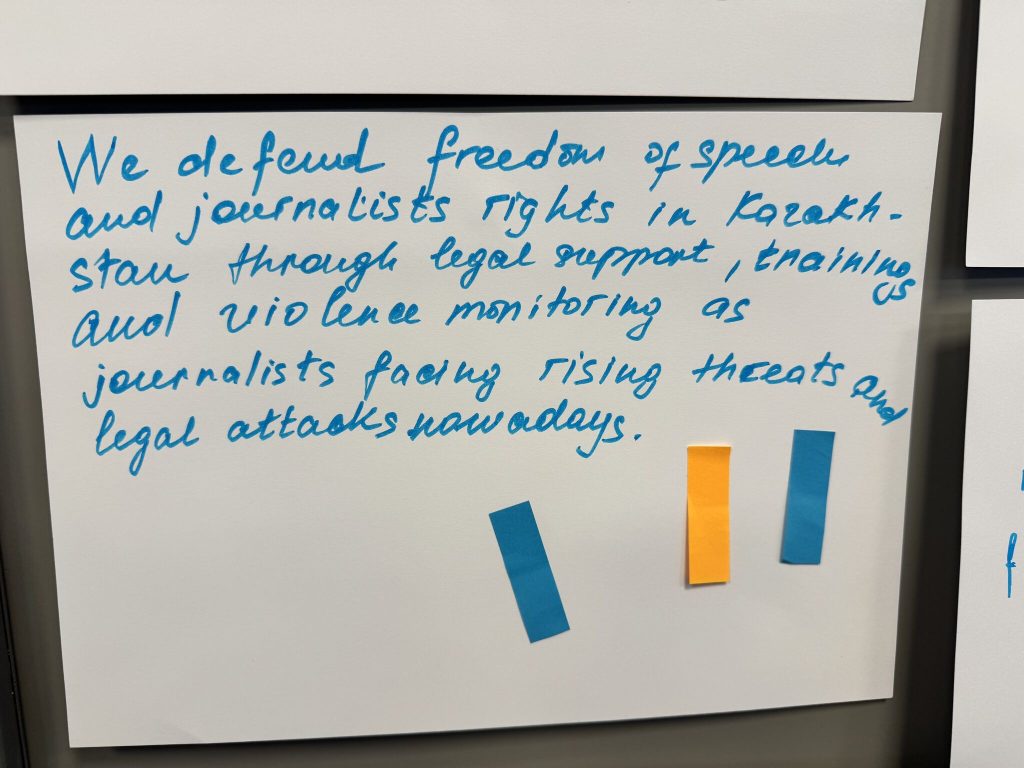 We defend freedom of speech
and journalists rights in Kazakh-
stan through legal support, trainings
and violence monitoring as
journalists facing rising threats and
legal attacks nowadays.